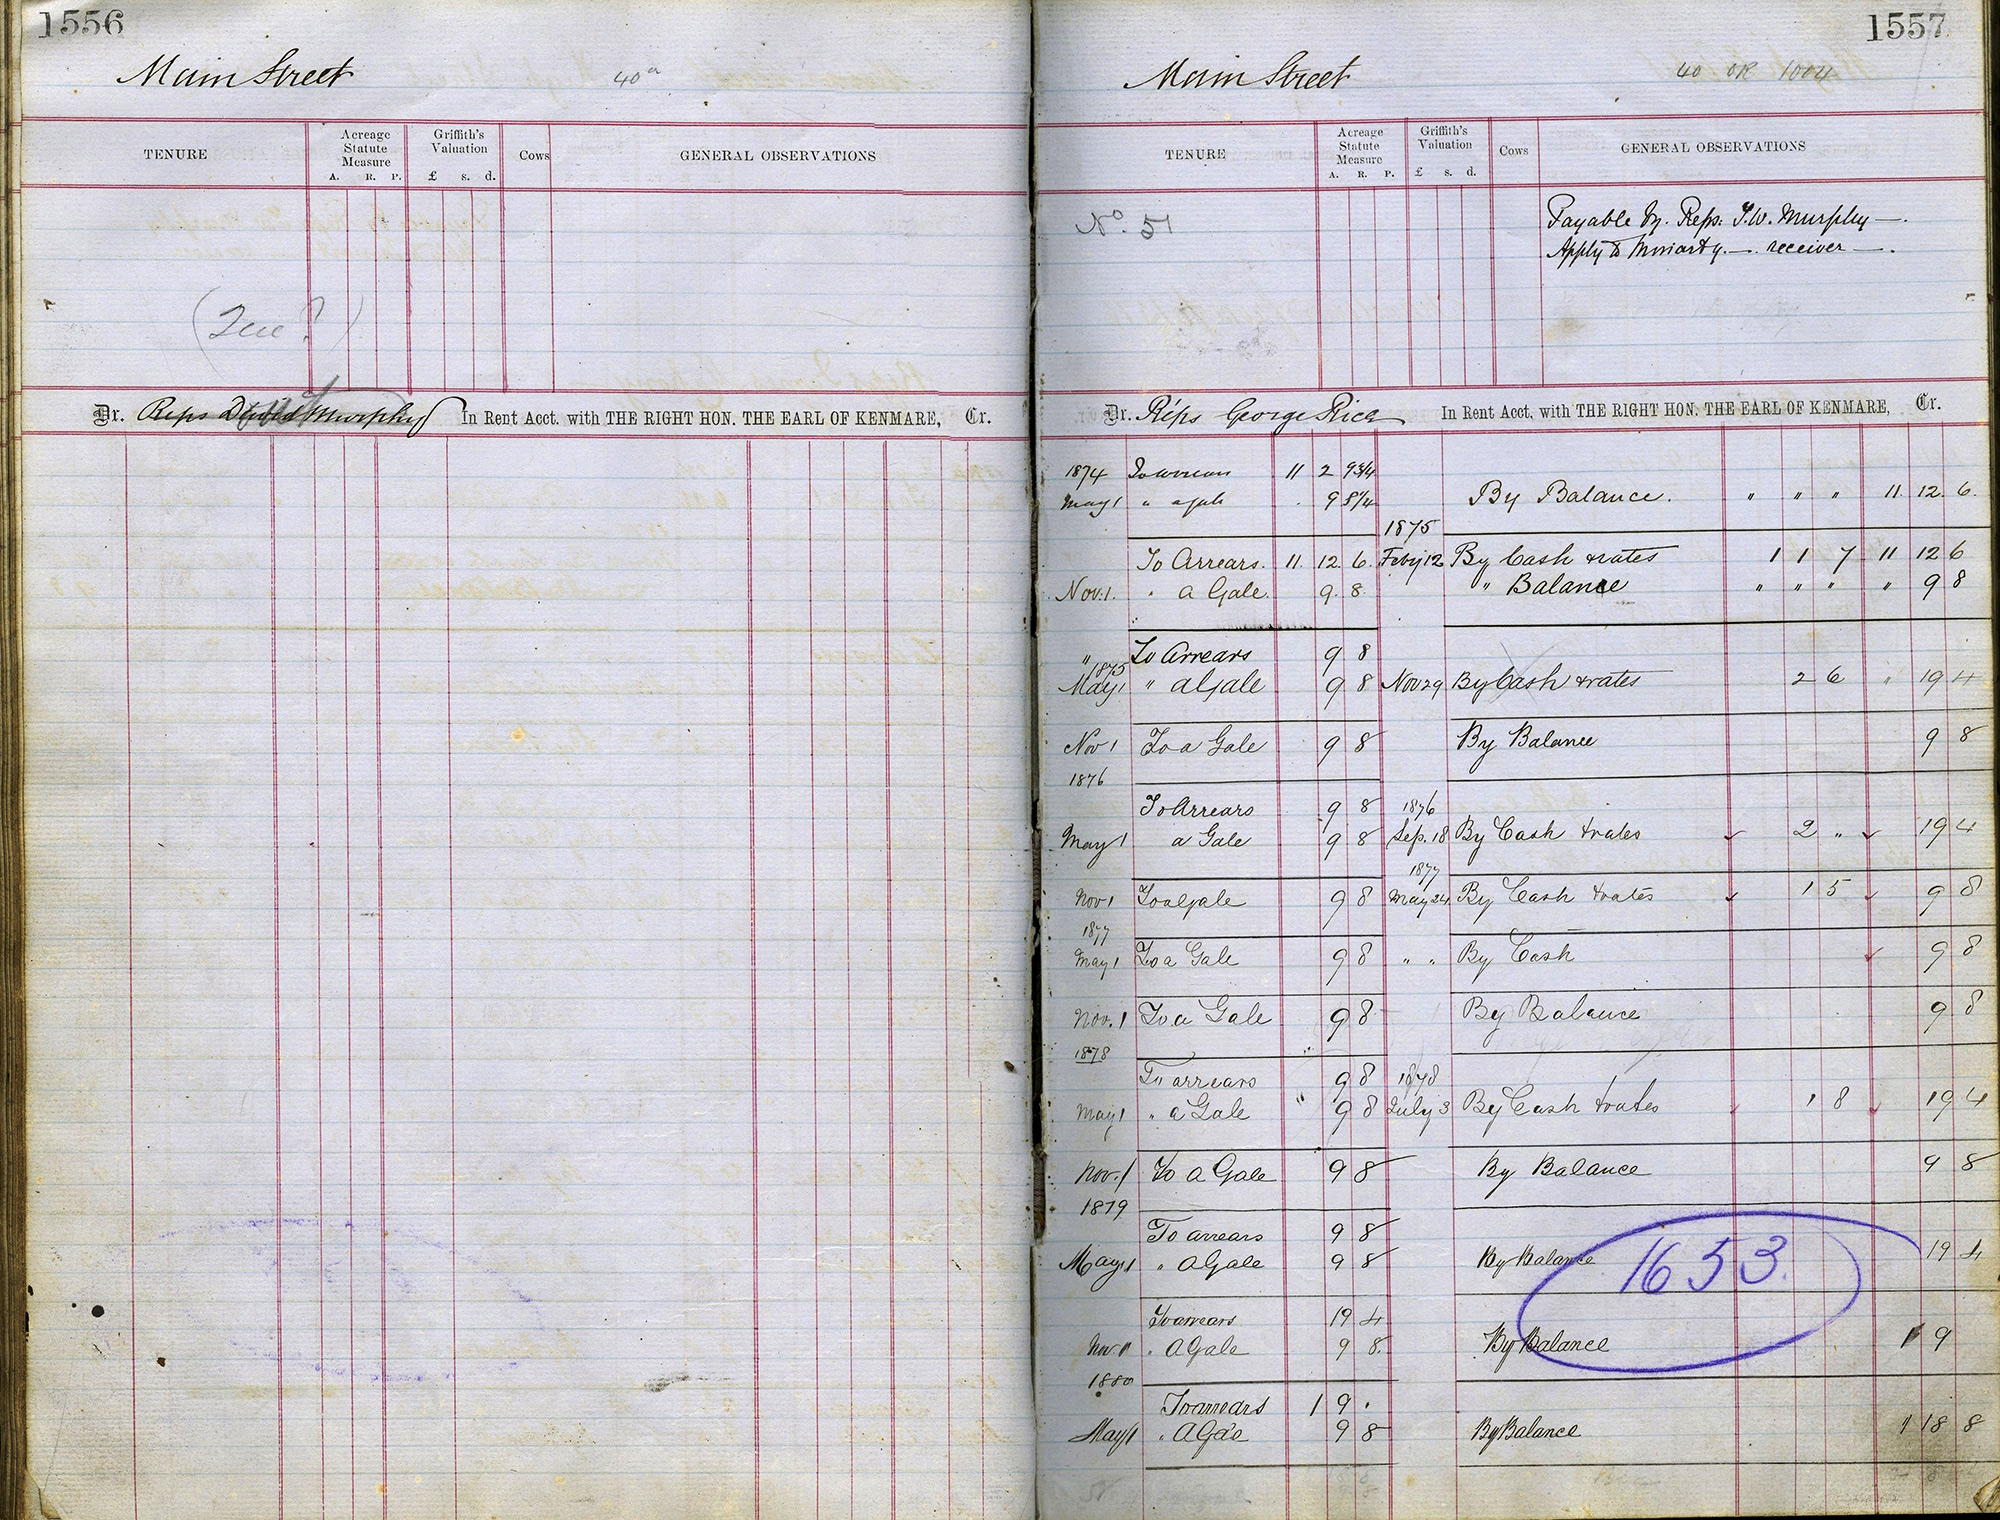 1556
Main Street
40a
TENURE
Acreage Statute Measure
A. R. P.
Griffith's Valuation
£ s. d.
Cows
GENERAL OBSERVATIONS
Dr. Reps David Murphy In Rent Acct. with THE RIGHT HON. THE EARL OF KENMARE, Cr.
1557
Main Street
40 OR 1004
TENURE
Acreage Statute Measure
A. R. P.
Griffith's Valuation
£ s. d.
Cows
GENERAL OBSERVATIONS
No. 51
Payable by Reps: T.W. Murphy —.
Apply to Moriarty — receiver —.
Dr. Reps George Rice In Rent Acct. with THE RIGHT HON. THE EARL OF KENMARE, Cr.
1874 To arrears 11 2 9 3/4
May 1 " a gale . 9 8 1/4 By Balance. " " " 11. 12. 6.
1875
To Arrears. 11. 12. 6. Feby 12 By Cash & rates 1 1 7 11 12 6
Nov. 1. " a Gale. 9. 8. " Balance " " " " 9 8
" To Arrears 9 8
1875
May 1 " a Gale 9 8 Nov 29 By Cash & rates 2 6 " 19 4
Nov 1 To a Gale 9 8 By Balance 9 8
1876
To Arrears 9 8 1876
May 1 a Gale 9 8 Sep. 18 By Cash & rates 2 " 19 4
1877
Nov 1 To a gale 9 8 May 24 By Cash & rates 1 5 9 8
1877
May 1 To a Gale 9 8 " " By Cash 9 8
Nov. 1 To a Gale 9 8 By Balance 9 8
1878
To arrears 9 8 1878
May 1 " a Gale " 9 8 July 3 By Cash & rates 1 8 19 4
Nov. 1 To a Gale 9 8 By Balance 9 8
1879
To arrears 9 8
May 1 " A Gale 9 8 By Balance 19 4
1653.
To arrears 19 4
Nov 1 " A Gale 9 8. By Balance 1 9
1880
To arrears 1 9 .
May 1 " A Gale 9 8 By Balance 1 18 8